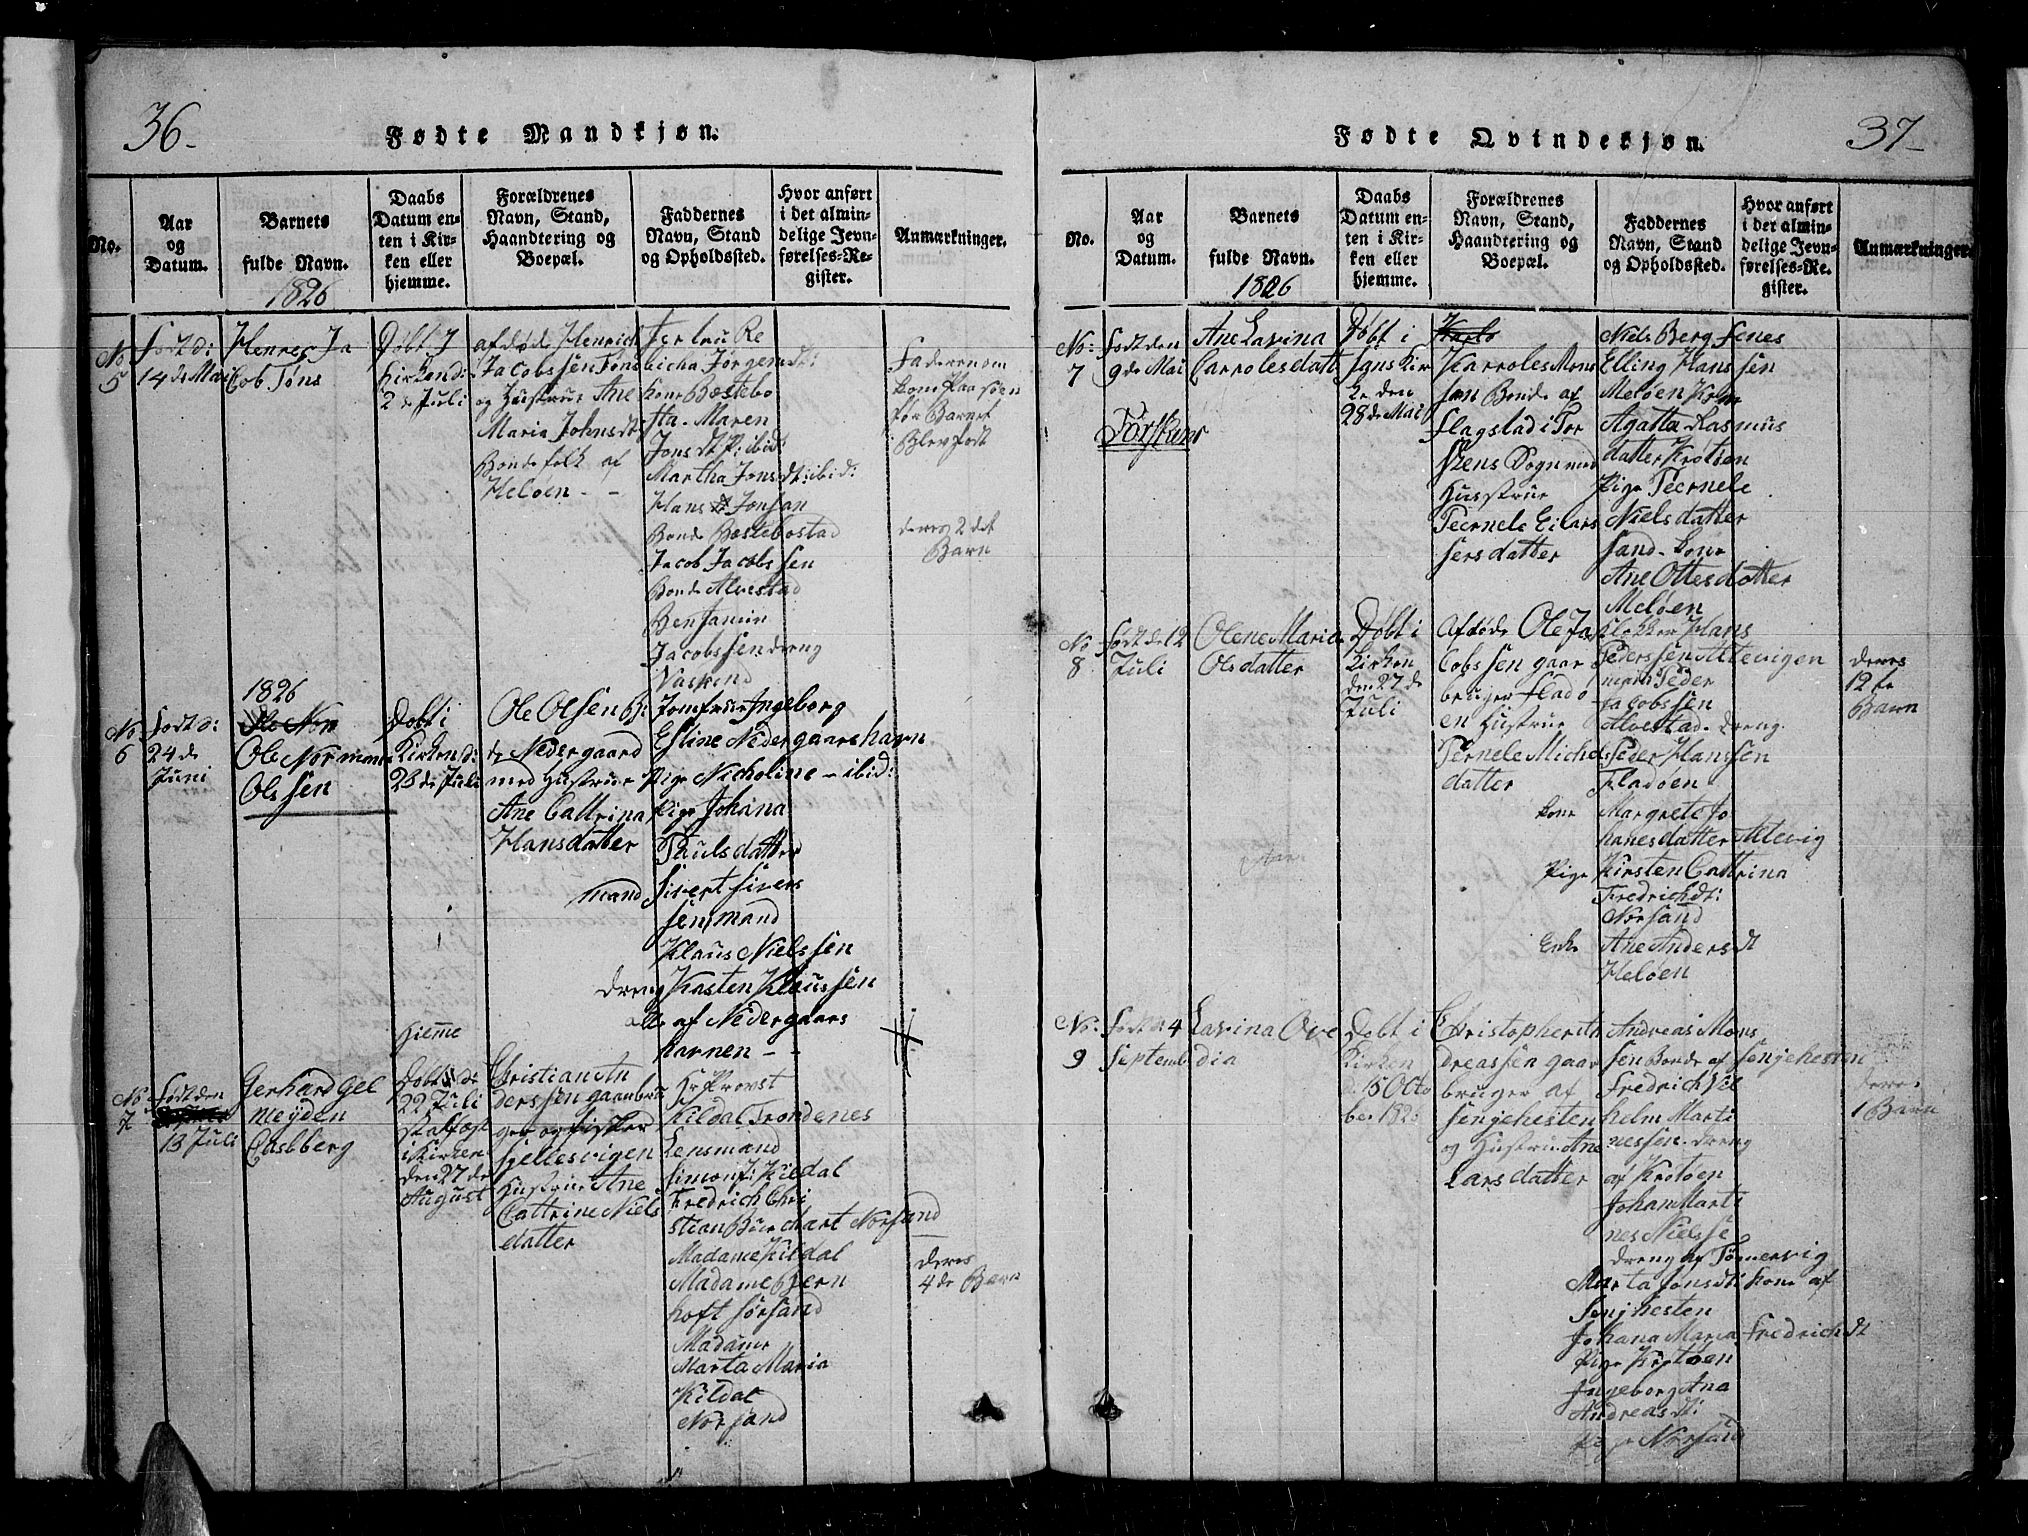 36-
Fødte Mandkjøn.
No.
Aar
og
Datum.
Barnets
fulde Navn.
1826
Daabs
Datum en-
ten i Kir-
ken eller
hjemme.
Forældrenes
Navn, Stand,
Haandtering og
Boepæl.
Faddernes
Navn, Stand
og Opholdssted.
Hvor anført
i det almin-
delige Jevn-
førelses-Re-
gister.
Anmærkninger.
No
5
Født d:
14 de Mai
Henrec Ja
cob Töns
Døbt I
Kirken d:
2 de Juli
afdøde Henrich
Jacobssen Töns
og Hustrue Ane
Maria Johnsdt
Bonde folk af
Heløen - -
Jertru Re
bicha Jørgensdt:
Kone Bæstebo
sta. Maren
Jonsdt P: ibid
Martha Jonsdt: ibid:
Hans Jonsan
Bonde Bæstebostad
Jacob Jacobssen
Bonde Alvestad
Benjamin
Jacobssen dreng
Vaskind
Faderen om
kom paa søen
før Barnet
Blev født
deres 2 det
Barn
1826
No
6
Født d:
24 de
Juni
Ole Nor
Ole Norman
Olssen
Døbt i
Kirken d:
23 de Juli
Ole Olsen B:
de Nedergaard
med Hustrue
Ane Cattrina
Hansdatter
Jomfrue Ingeborg
Esline Nedergaardshavn
Pige Nicholine - ibid:
Pige Johana
Paulsdatter
mand Sivert Sivers
sen mand
Klaus Nielssen
dreng Kasten Klaussen
alle af Nedergaars
havnen - -
No
7
Født den
13 Juli
Gerhard Gel
meyden
Casbberg
Hiemme
Døbt de
22 Juli
stalfæst
i Kirken
den 27 de
August
Christian An
derssen gaarbru
ger og fisker
Gjellesvigen
Hustrue Ane
Cattrine Niels
datter
Hr Provst
Kildal Trondenes
Lensmand
Simon J: Kildal
Fredrich Chri
stian Burchart Norsand
Madame Kildal
Madame Bjern
hoft Sørsand
Madame
Marta Maria
Kildal
Norsand
deres
4 de Barn
37-
Fødte Qvindekjøn.
No.
Aar
og
Datum.
Barnets
fulde Navn.
1826
Daabs
Datum en-
ten i Kir-
ken eller
hjemme.
Forældrenes
Navn, Stand,
Haandtering og
Boepæl.
Faddernes
Navn, Stand
og Opholdssted.
Hvor anført
i det almin-
delige Jevn-
førelses-Re-
gister.
Anmærkninger.
No:
7
Født den
9 de Mai
Torskens
Ane Lavina
Carrolesdatt
Døbt i
Sans Kir
ke den
28 de Mai
Karroles Mons
san Bonde af
Flagstad i Tor
skens Sogn med
Husstrue
Peernele Eilers
sersdatter
Niels Berg Senes
Elling Hanssen
Meløen Kone
Agatta Rasmus
datter Krotøen
Pige Peernele
Nielsdatter
Sand. Kone
Ane Ottesdatter
Meløen
No
8
Født de 12
Juli
Olene Maria
Olsdatter
Døbt i
Kirken
den 27 de
Juli
Afdøde Ole Ja
cobssen gaar
bruger Flado
en Hustrue
Pernele Michels
datter
Klokker Hans
Pederssen Altevigen
mand Peder
Jacobssen
Alvestad. dreng
Peder Hanssen
Fladøen
kone Margrete Jo
hanesdatter Altevig
Pige Kirsten Cattrina
Fredrichdt:
Norsand
Enke Ane Andersdt
Heløen
deres
12 te
Barn
No:
9
Født d: 4
Septemb
Lavina Ove
dia
Døbt i
Kirken
d. 15 Octo
ber 1826
Christopher An
dreassen gaar
bruger af
Senjehesten
og Hustrue Ane
Larsdatter
Andreas Mons
sen Bonde af Senjehesten
Fredrich Vil
helm Marti
nessen. dreng
af Krotøen
Johan Marti
nes Nielsse
dreng af Tønnervig
Marta Jonsdt: kone af
Senjhesten
Johana Maria Fredrichdt
Pige Krotøen
Ingeborg Ana
Andreasdt:
Pige Norsand
deres
1 Barn